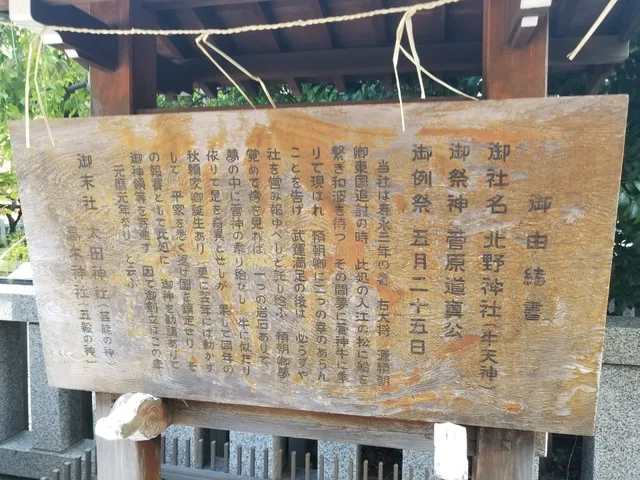 御由緒書
御社名 北野神社(牛天神)
御祭神 菅原道真公
御例祭 五月二十五日
当社は寿永三年の春 右大将 源頼朝
卿東国追討の時、此処の入江の松に船を
繋ぎ和波を待つ その間夢に菅神牛に乗
りて現はれ 頼朝卿に二つの幸のあらん
ことを告げ 武運満足の後は 必らずや
社を営み報ゆべしと託し給ふ 頼朝卿夢
覚めて傍を見れば 一つの岩石ありて
夢の中に菅神の乗り給ひし 牛に似たり
依りて是を奇異とせしが 果して同年の
秋頼家卿誕生あり 更に翌年には動かず
して 平家を悉く退け国を鎮定せり そ
の報賽として此処に 御神を勧請ありて
御神領等を寄進す 因て御創立はこの年
元暦元年なり と云ふ
御末社 太田神社(芸能の神)
高木神社(五穀の神)